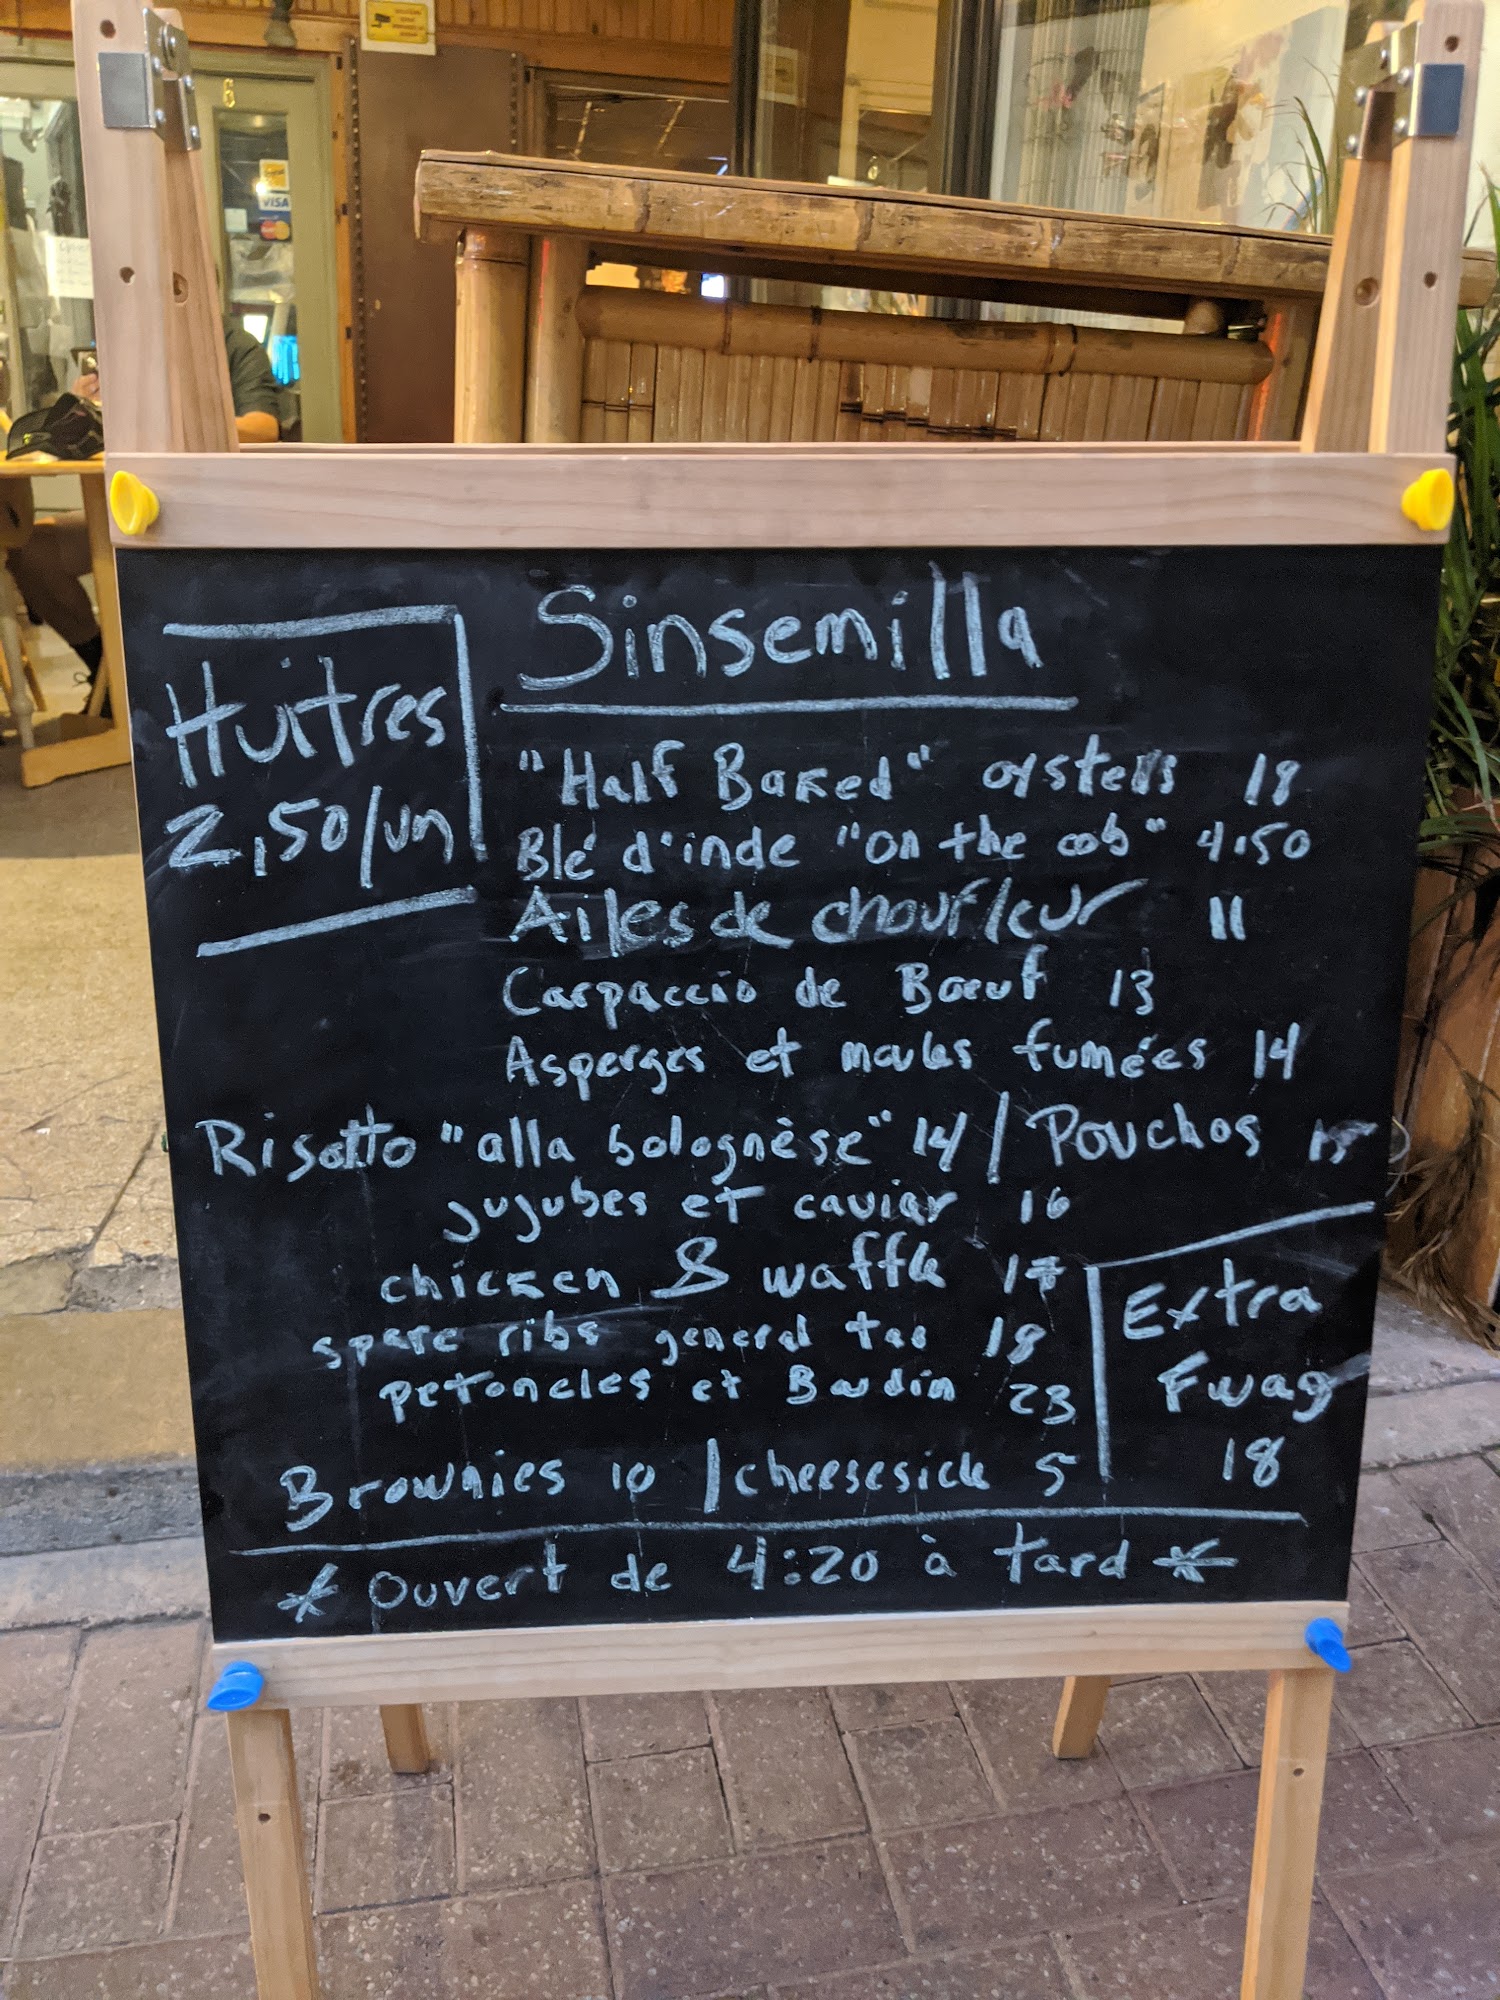 6
VISA
Sinsemilla
Huitres
2,50/un
"Half Baked" oysters 18
Blé d'inde "on the cob" 4.50
Ailes de choufleur 11
Carpaccio de Boeuf 13
Asperges et moules fumées 14
Risotto "alla bolognèse" 14 / Pouchos 15
jujubes et caviar 16
chicken & waffle 17
spare ribs general tao 18
petoncles et Boudin 23
Extra
Fwag
18
Brownies 10 / cheesesick 5
* Ouvert de 4:20 à tard *